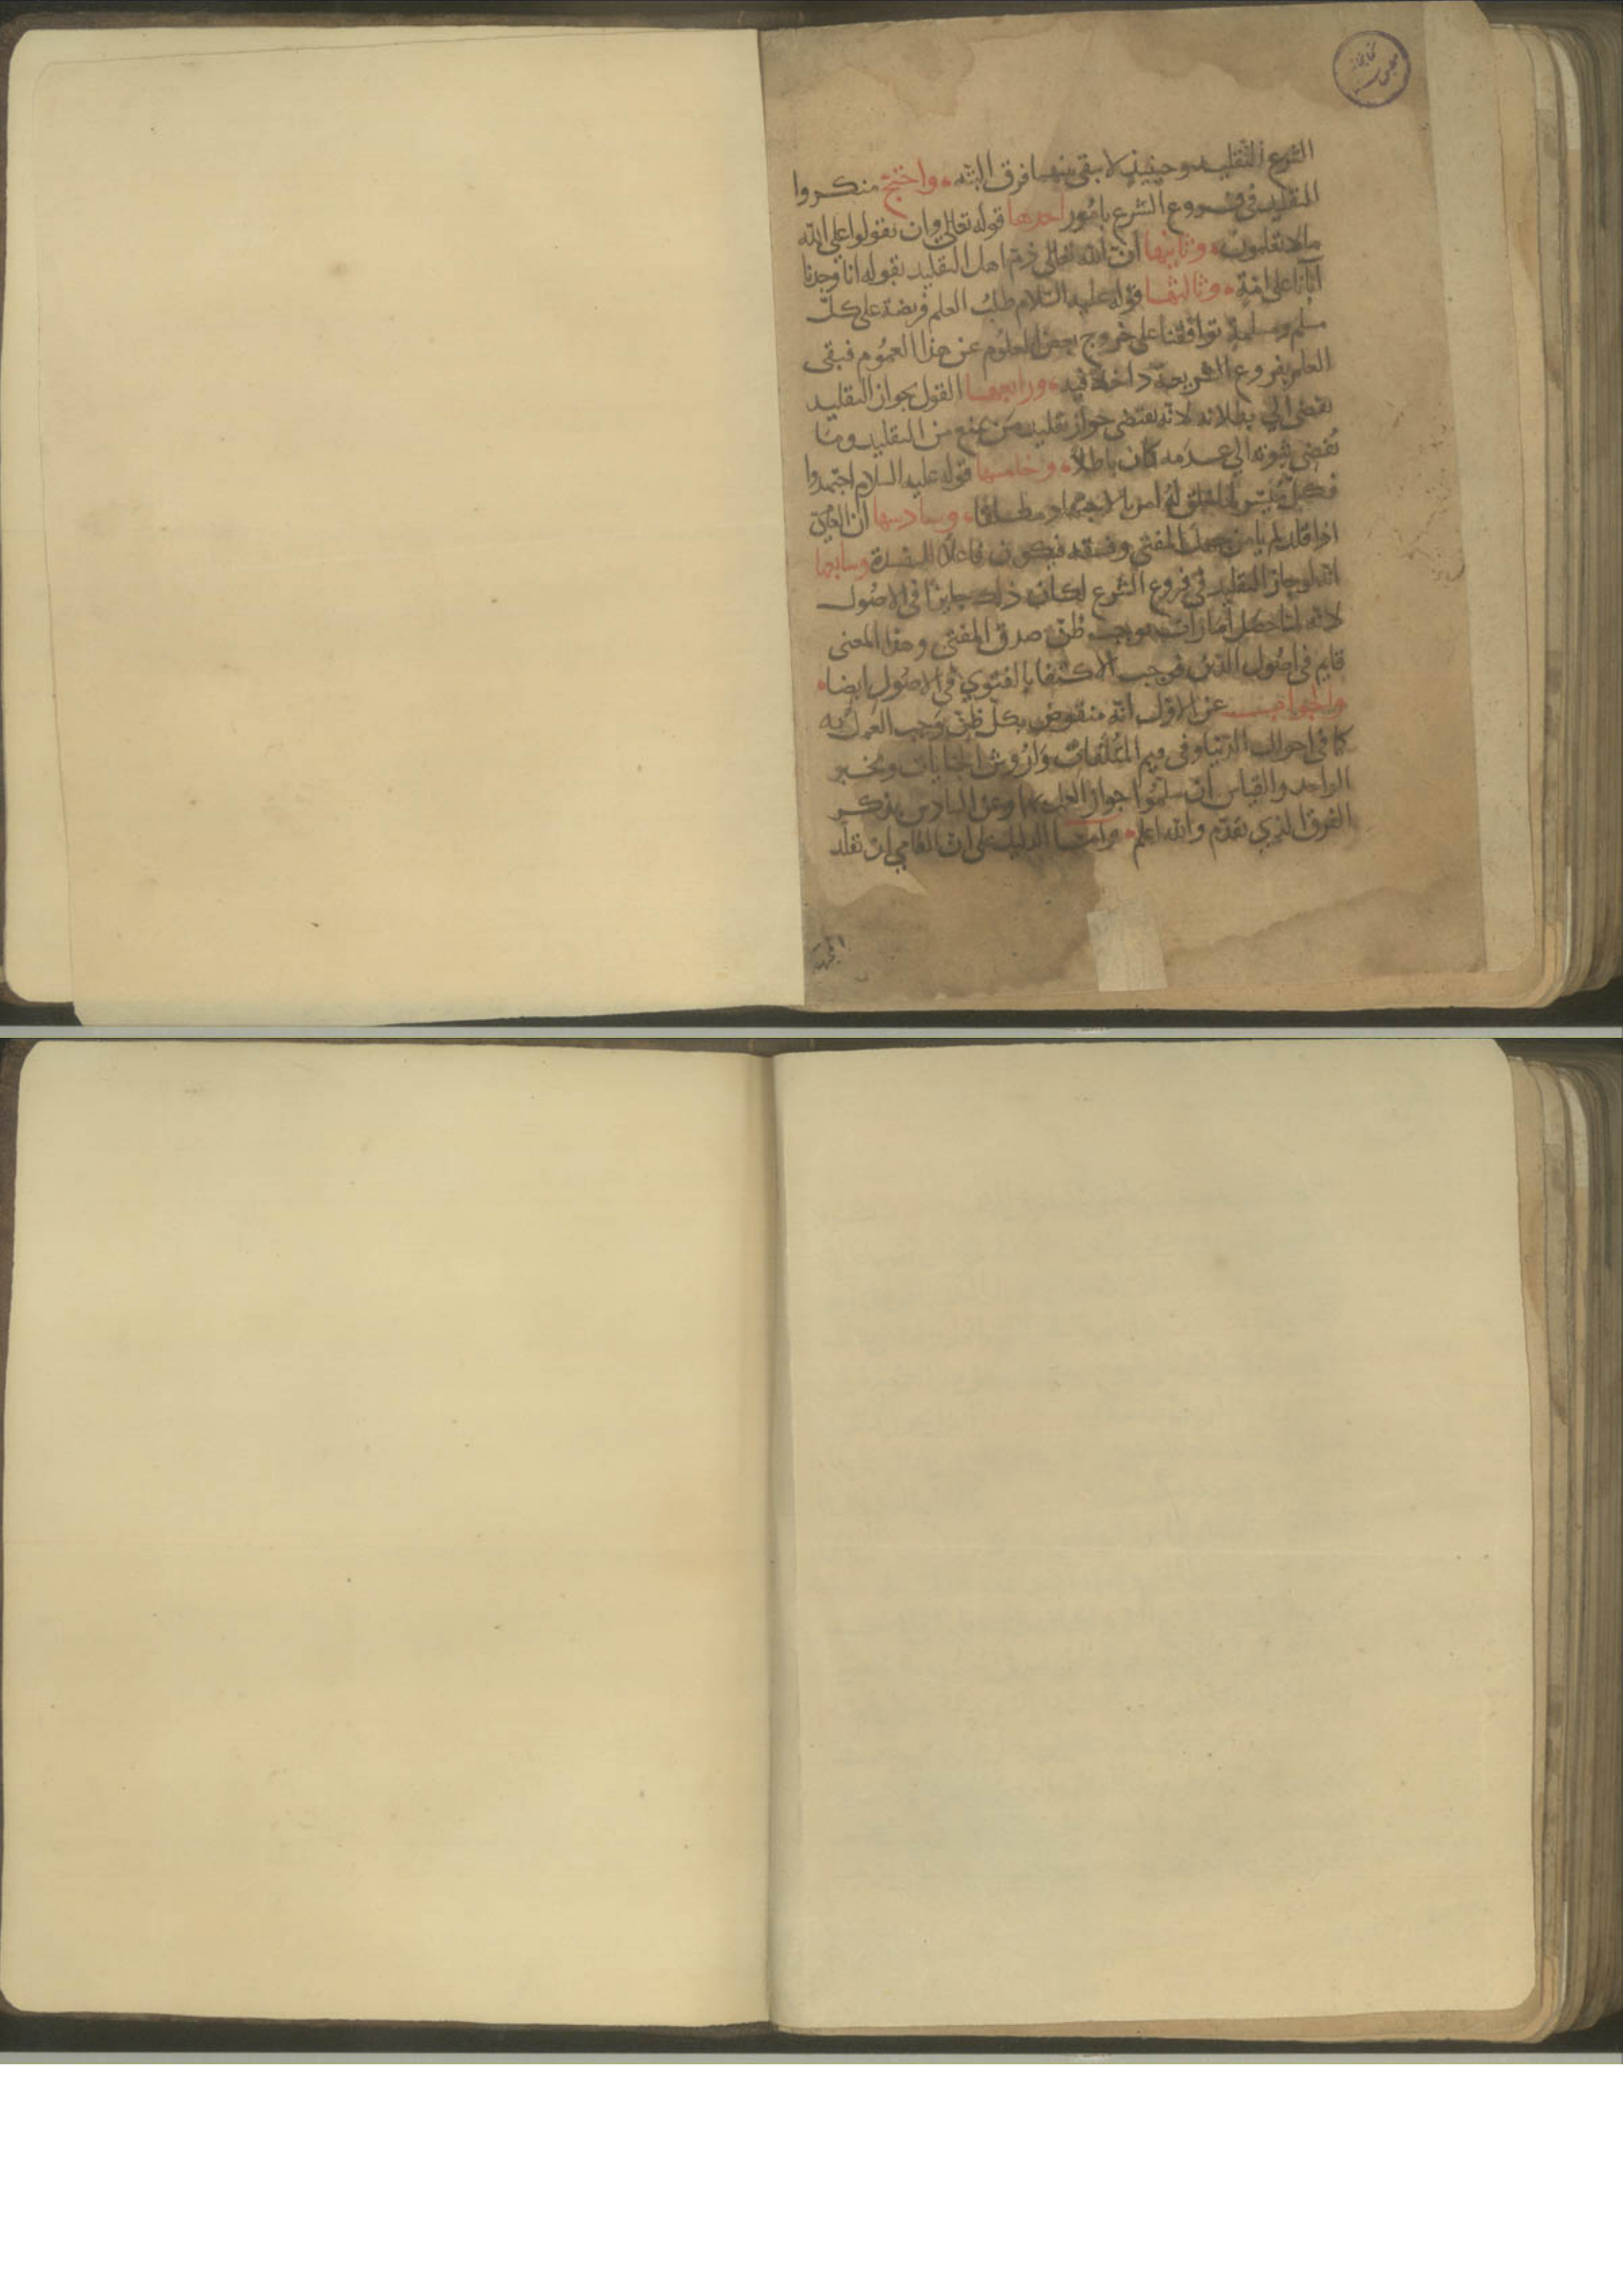 الشرع التقليد وحينئذ لا يبقى بينهما فرق البتة واحتج منكروا
التقليد في فروع الشرع بامور احدها قوله تعالى وان تقولوا على الله
مالا تعلمون وثانيها ان الله تعالى ذم اهل التقليد بقوله انا وجدنا
آباءنا على امة وثالثها قوله عليه السلام طلب العلم فريضة على كل
مسلم ومسلمة توافقنا على خروج بعض العلوم عن هذا العموم فبقى
العلم بفروع الشريعة داخلا فيه ورابعها القول بجواز التقليد
يفضى الي بطلانه لانه يقتضى جواز تقليد من يمنع من التقليد وما
يُفضى ثبوته الي عدمه كان باطلا وخامسها قوله عليه السلام اجتهدوا
فكل ميسر لما خلق له امر بالاجتهاد مطلقا وسادسها ان العامى
اذا قلد لم يامن جهل المفتي وفسقه فيكون فاعلا للمفسدة وسابعها
انه لو جاز التقليد في فروع الشرع لكان ذلك جايزا في الاصُول
لانه لنا حصل امارات توجب ظن صدق المفتي وهذا المعنى
قايم في اصُول الدين فوجب الاكتفا بالفتوي في الاصُول ايضا
والجواب عن الاول انه منقوض بكل ظن وجب العمل به
كما في احوال الدنيا وفى قيم المُتلفات وارُوش الجنايات وبخبر
الواحد والقياس ان سلموا جواز العمل بهما وعن السادس يذكر
الفرق الذي تقدم والله اعلم وامّا الدليل على ان العامي ان يقلد